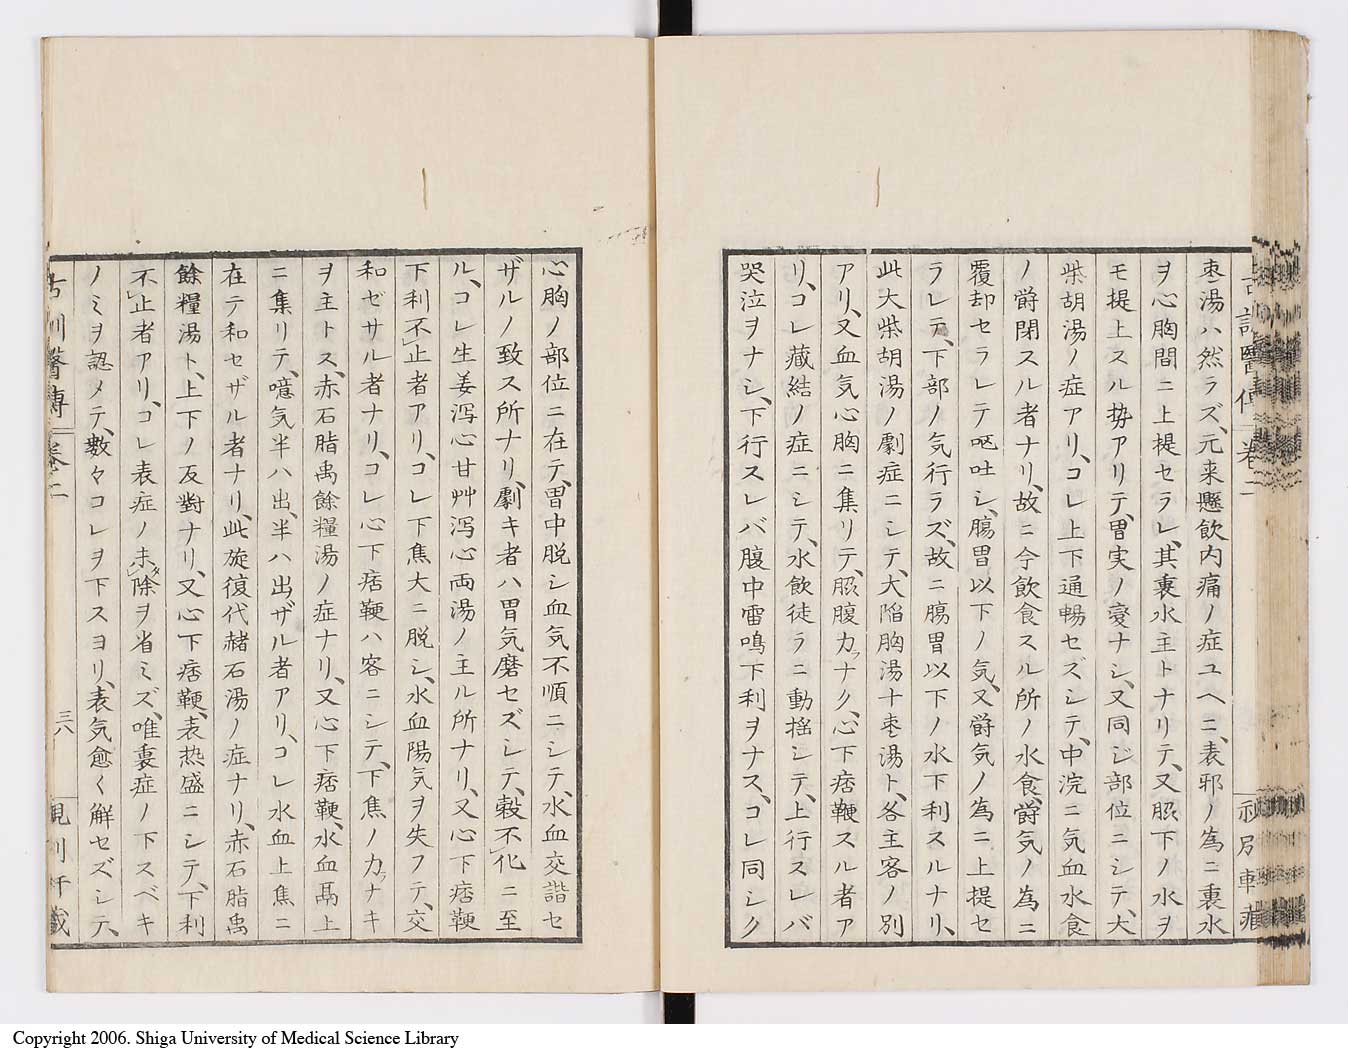 棗湯ハ然ラズ、元来懸飲内痛ノ症ユヘニ、表邪ノ為ニ裏水
ヲ心胸間ニ上提セラレ、其裏水主トナリテ、又服下ノ水ヲ
モ提上スル势アリテ、胃実ノ変ナシ、又同ジ部位ニシテ、大
柴胡湯ノ症アリ、コレ上下通暢セズシテ、中浣ニ気血水食
ノ欝閉スル者ナリ、故ニ今飲食スル所ノ水食、欝気ノ為ニ
覆却セラレテ呕吐シ、腸胃以下ノ気、又欝気ノ為ニ上提セ
ラレテ、下部ノ気行ラズ、故ニ腸胃以下ノ水下利スルナリ、
此大柴胡湯ノ劇症ニシテ、大陥胸湯十棗湯ト、各主客ノ別
アリ、又血気心胸ニ集リテ、脇腹力ラナク、心下痞鞕スル者ア
リ、コレ蔵結ノ症ニシテ、水飲徒ラニ動揺シテ、上行スレバ
哭泣ヲナシ、下行スレバ腹中雷鳴下利ヲナス、コレ同シク
心胸ノ部位ニ在テ、胃中脱シ血気不順ニシテ、水血交諧セ
ザルノ致ス所ナリ、劇キ者ハ胃気磨セズシテ、穀不化ニ至
ル、コレ生姜瀉心甘艸瀉心両湯ノ主ル所ナリ、又心下痞鞕
下利不止者アリ、コレ下焦大ニ脱シ、水血陽気ヲ失フテ、交
和ゼサル者ナリ、コレ心下痞鞕ハ客ニシテ、下焦ノ力ラナキ
ヲ主トス、赤石脂禹餘糧湯ノ症ナリ、又心下痞鞕、水血鬲上
ニ集リテ、噫気半ハ出、半ハ出ザル者アリ、コレ水血上焦ニ
在テ和セザル者ナリ、此旋復代赭石湯ノ症ナリ、赤石脂禹
餘糧湯ト、上下ノ反對ナリ、又心下痞鞕、表热盛ニシテ、下利
不止者アリ、コレ表症ノ未タ除ヲ省ミズ、唯裏症ノ下スベキ
ノミヲ認メテ、數々コレヲ下スヨリ、表気愈く解セズシテ、
三八